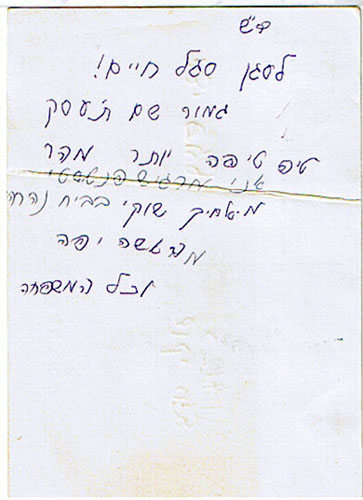 ד"ש
לסגן סגל חיים!
גמור שם ת'עסק
טיפ טיפה יותר מהר
אני מרגיש פנטסטי
שוקי
מהאשה יפה
וכל המשפחה